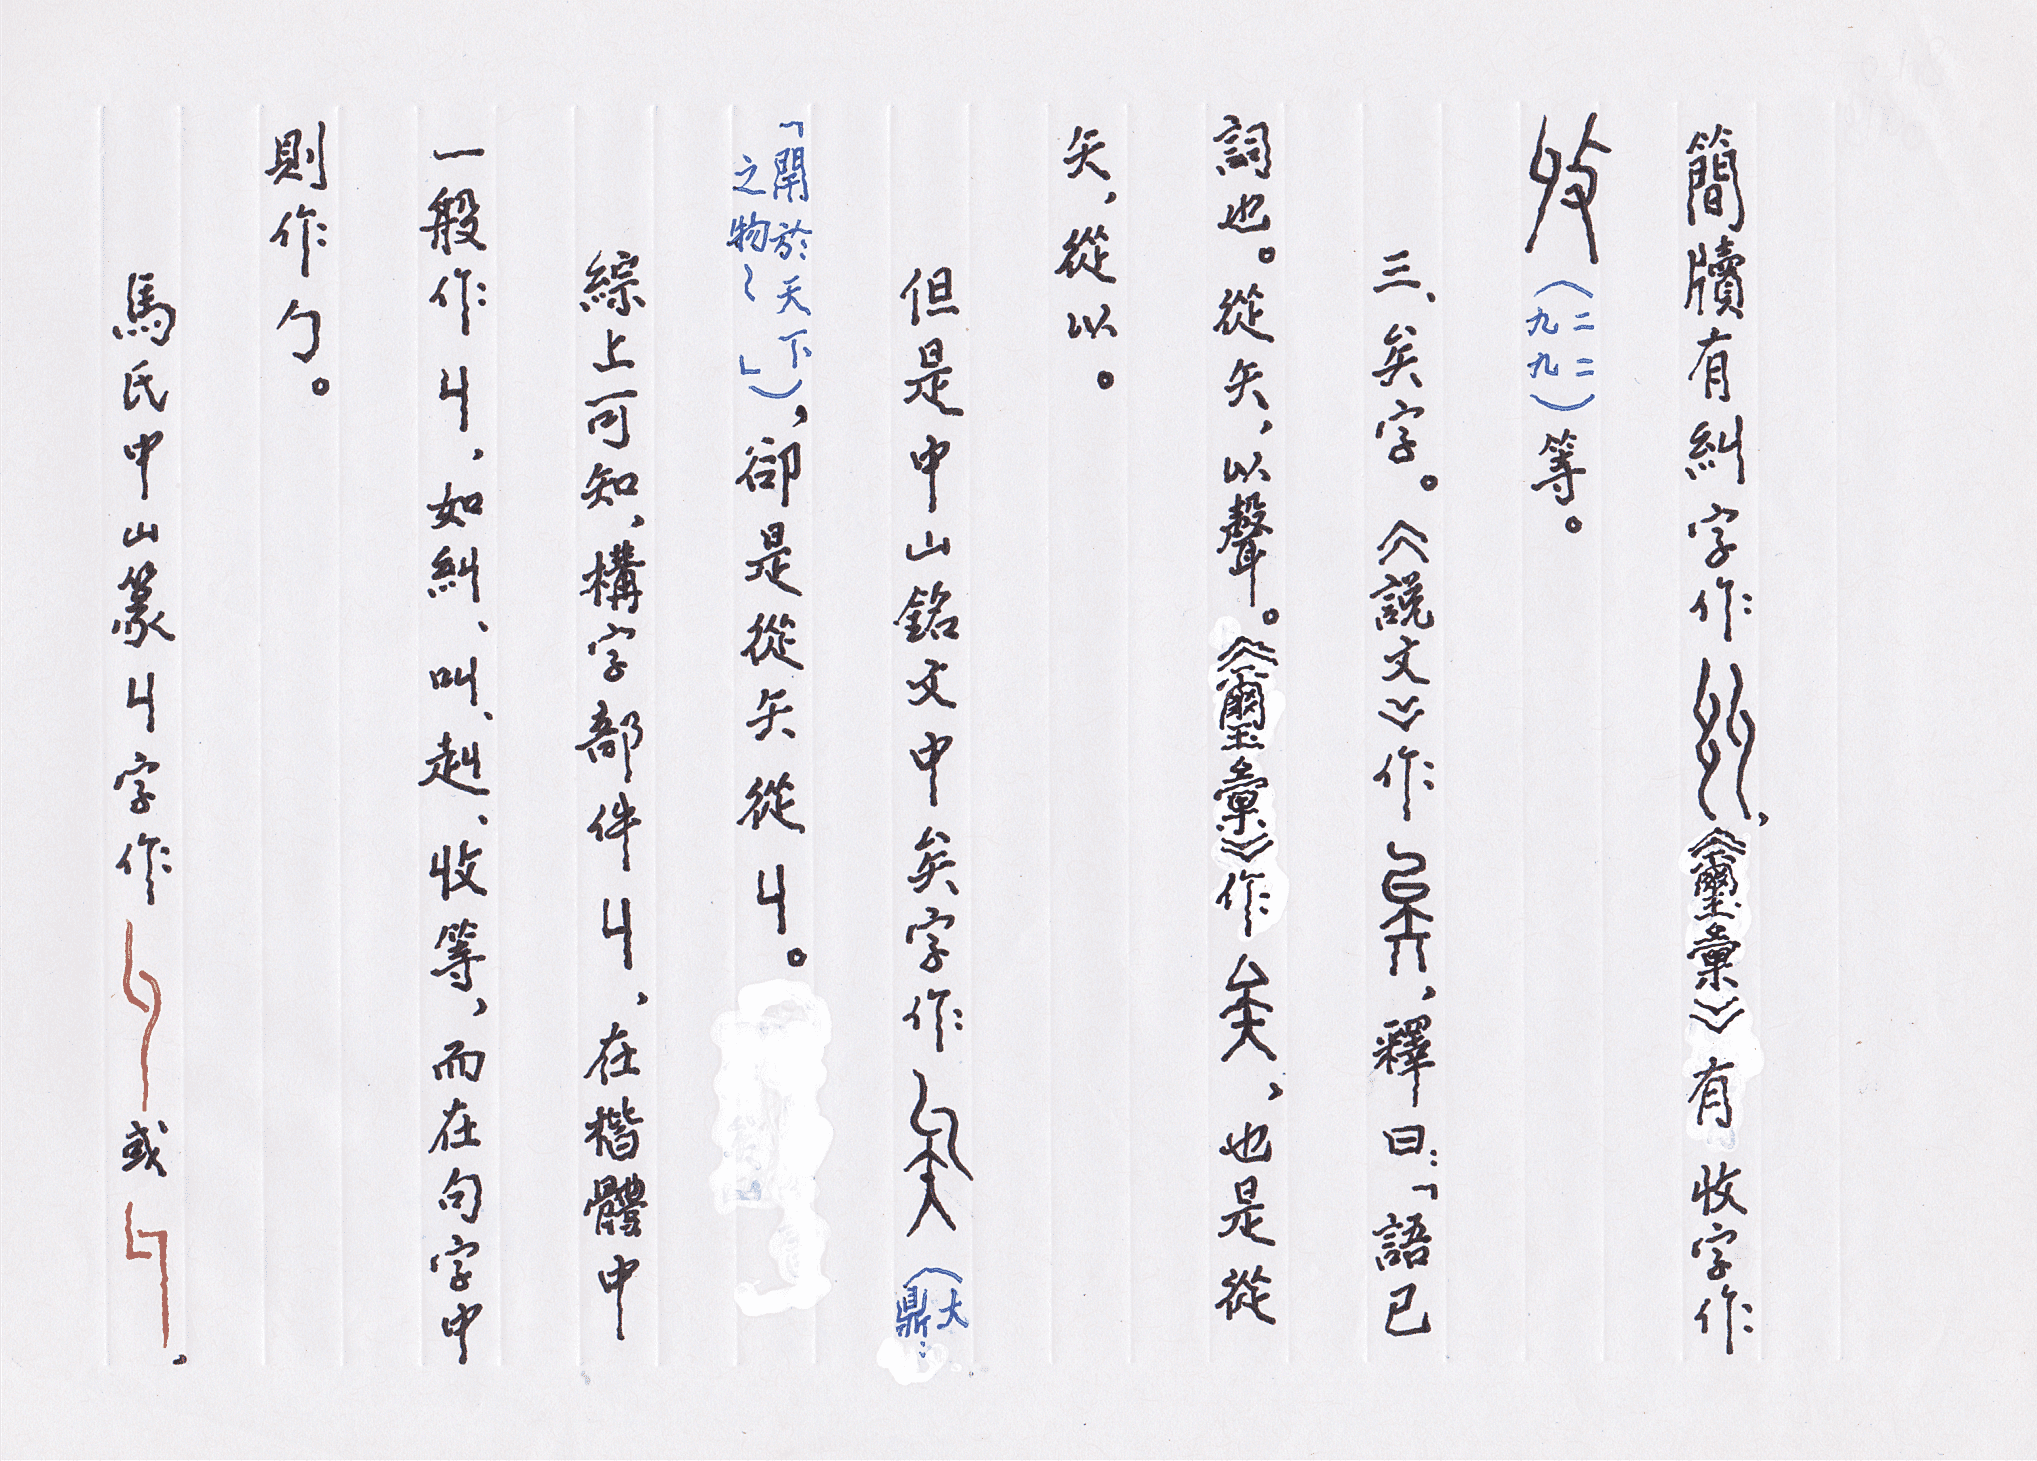 簡牘有糾字作，《璽彙》有收字作
（二二九九）等。
三、矣字。《説文》作，釋曰：「語已
詞也。從矢，以聲。《璽彙》作，也是從
矢，從以。
但是中山銘文中矣字作（大鼎：
「開於天下之物〻」），卻是從矢從丩。
綜上可知，構字部件丩，在楷體中
一般作丩，如糾、叫、赳、收等，而在句字中
則作勹。
馬氏中山篆丩字作或，